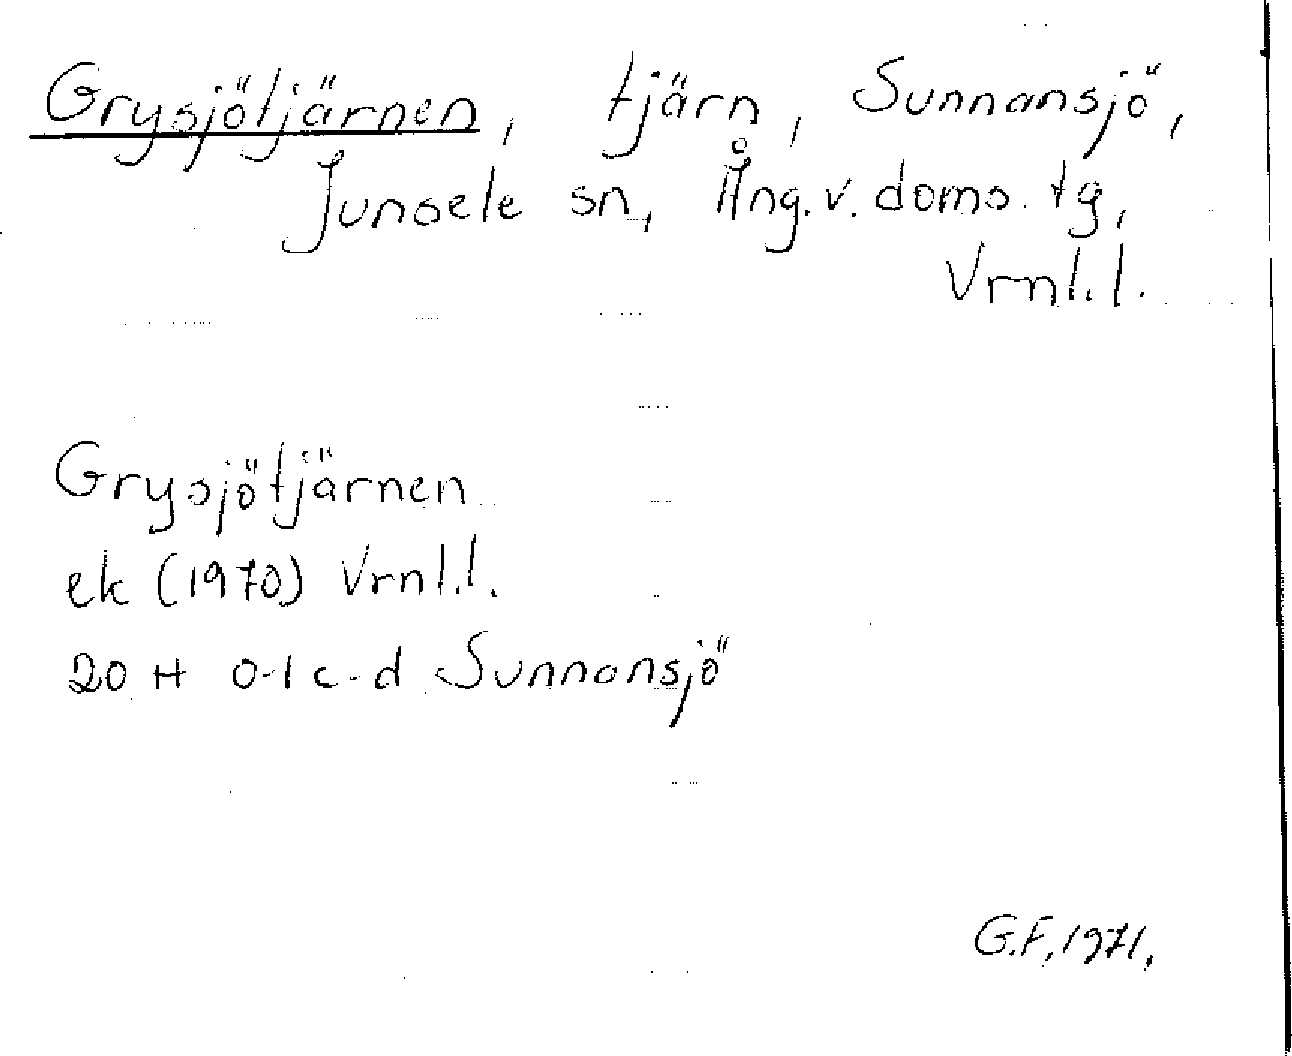 Grysjötjärnen, tjärn, Sunnansjö,
Junsele sn, Ång.v. doms. tg,
Vrnl.l.
Grysjötjärnen
ek (1970) Vrnl.l.
20 H 0-1 c-d Sunnansjö
G.F, 1971.